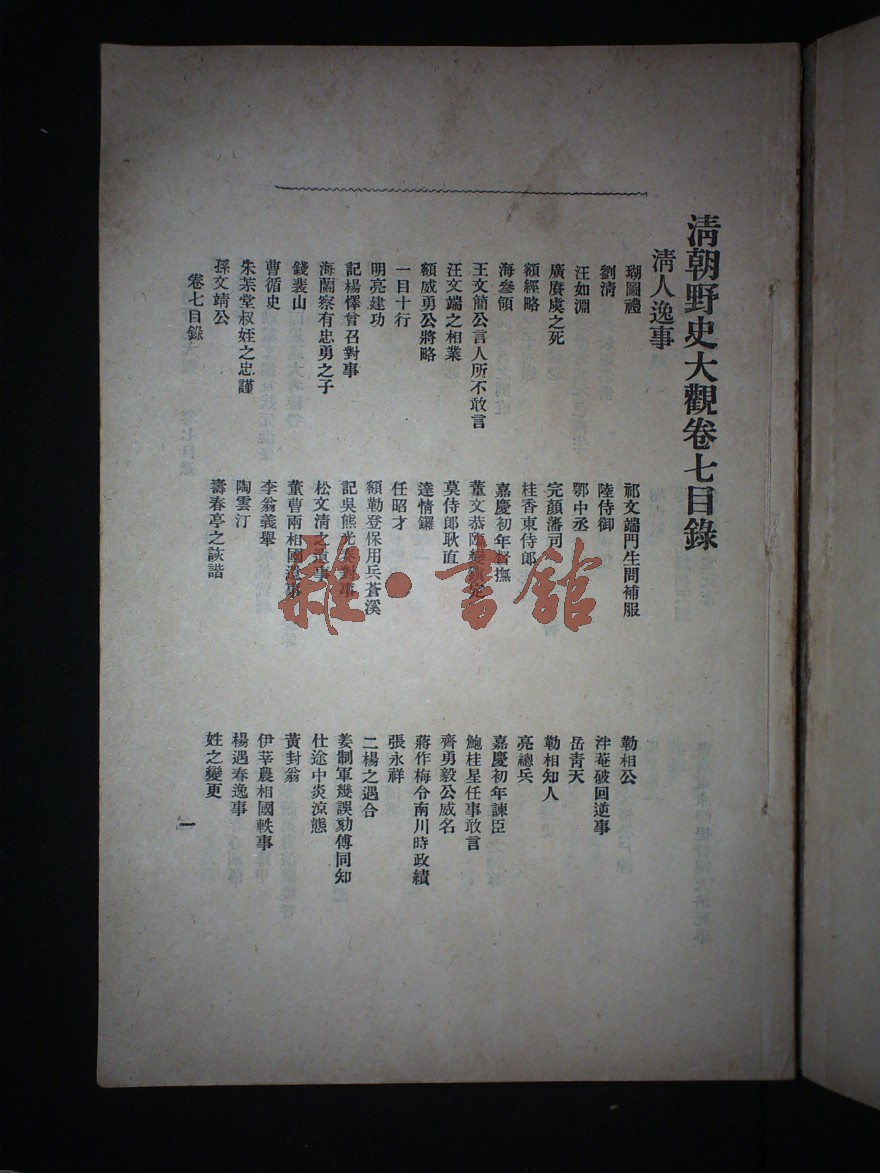 清朝野史大觀卷七目錄
清人逸事
瑚圖禮 祁文端門生問補服 勒相公
劉清 陸侍御 泮菴破回逆事
汪如淵 鄂中丞 岳青天
廣賡虞之死 完顏藩司 勒相知人
額經略 桂香東侍郎 亮總兵
海參領 嘉慶初年督撫 嘉慶初年諫臣
王文簡公言人所不敢言 董文恭臨變鎮定 鮑桂星任事敢言
汪文端之相業 莫侍郎耿直 齊勇毅公威名
額威勇公將略 達情鑼 蔣作梅令南川時政績
一目十行 任昭才 張永祥
明亮建功 額勒登保用兵蒼溪 二楊之遇合
記楊懌曾召對事 記吳熊光奏對事 姜制軍幾誤劾傅同知
海蘭察有忠勇之子 松文清之遺事 仕途中炎涼態
錢裴山 董曹兩相國 事 黃封翁
曹循史 李翁義舉 伊莘農相國軼事
朱茮堂叔姪之忠謹 陶雲汀 楊遇春逸事
孫文靖公 壽春亭之詼諧 姓之變更
卷七目錄 一
雜·書館